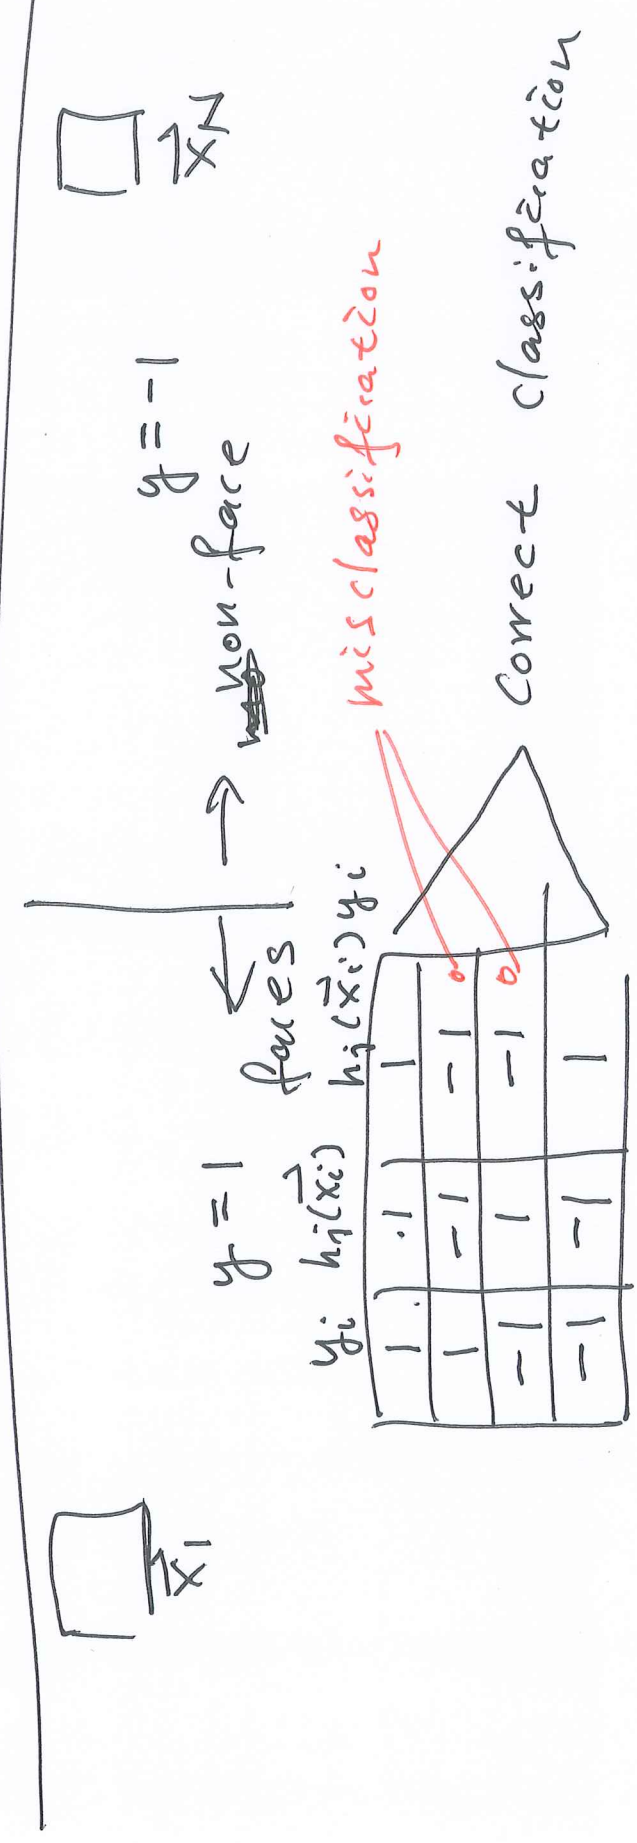 y = 1
y = -1
← faces
→ non-face
x⃗1
x⃗N
y_i h_j(x⃗_i) h_j(x⃗_i) y_i
1 1 1
1 -1 -1
-1 1 -1
-1 -1 1
misclassification
Correct classification